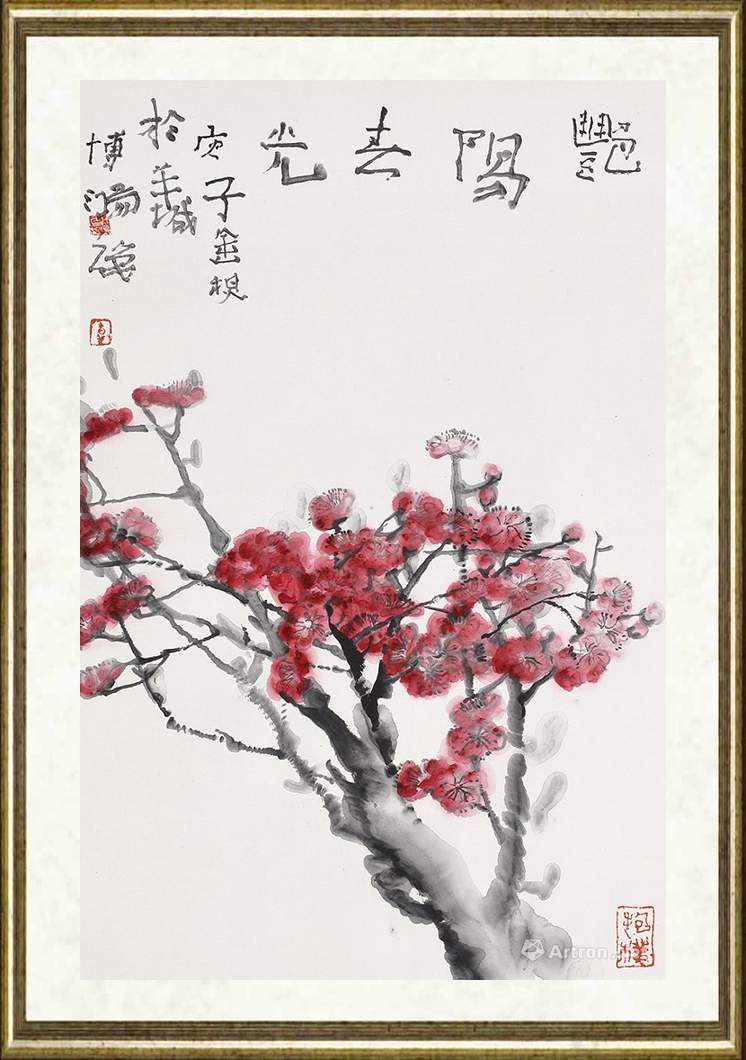 艷陽春光
庚子金
於羊城
博鴻
抱樸
Artron